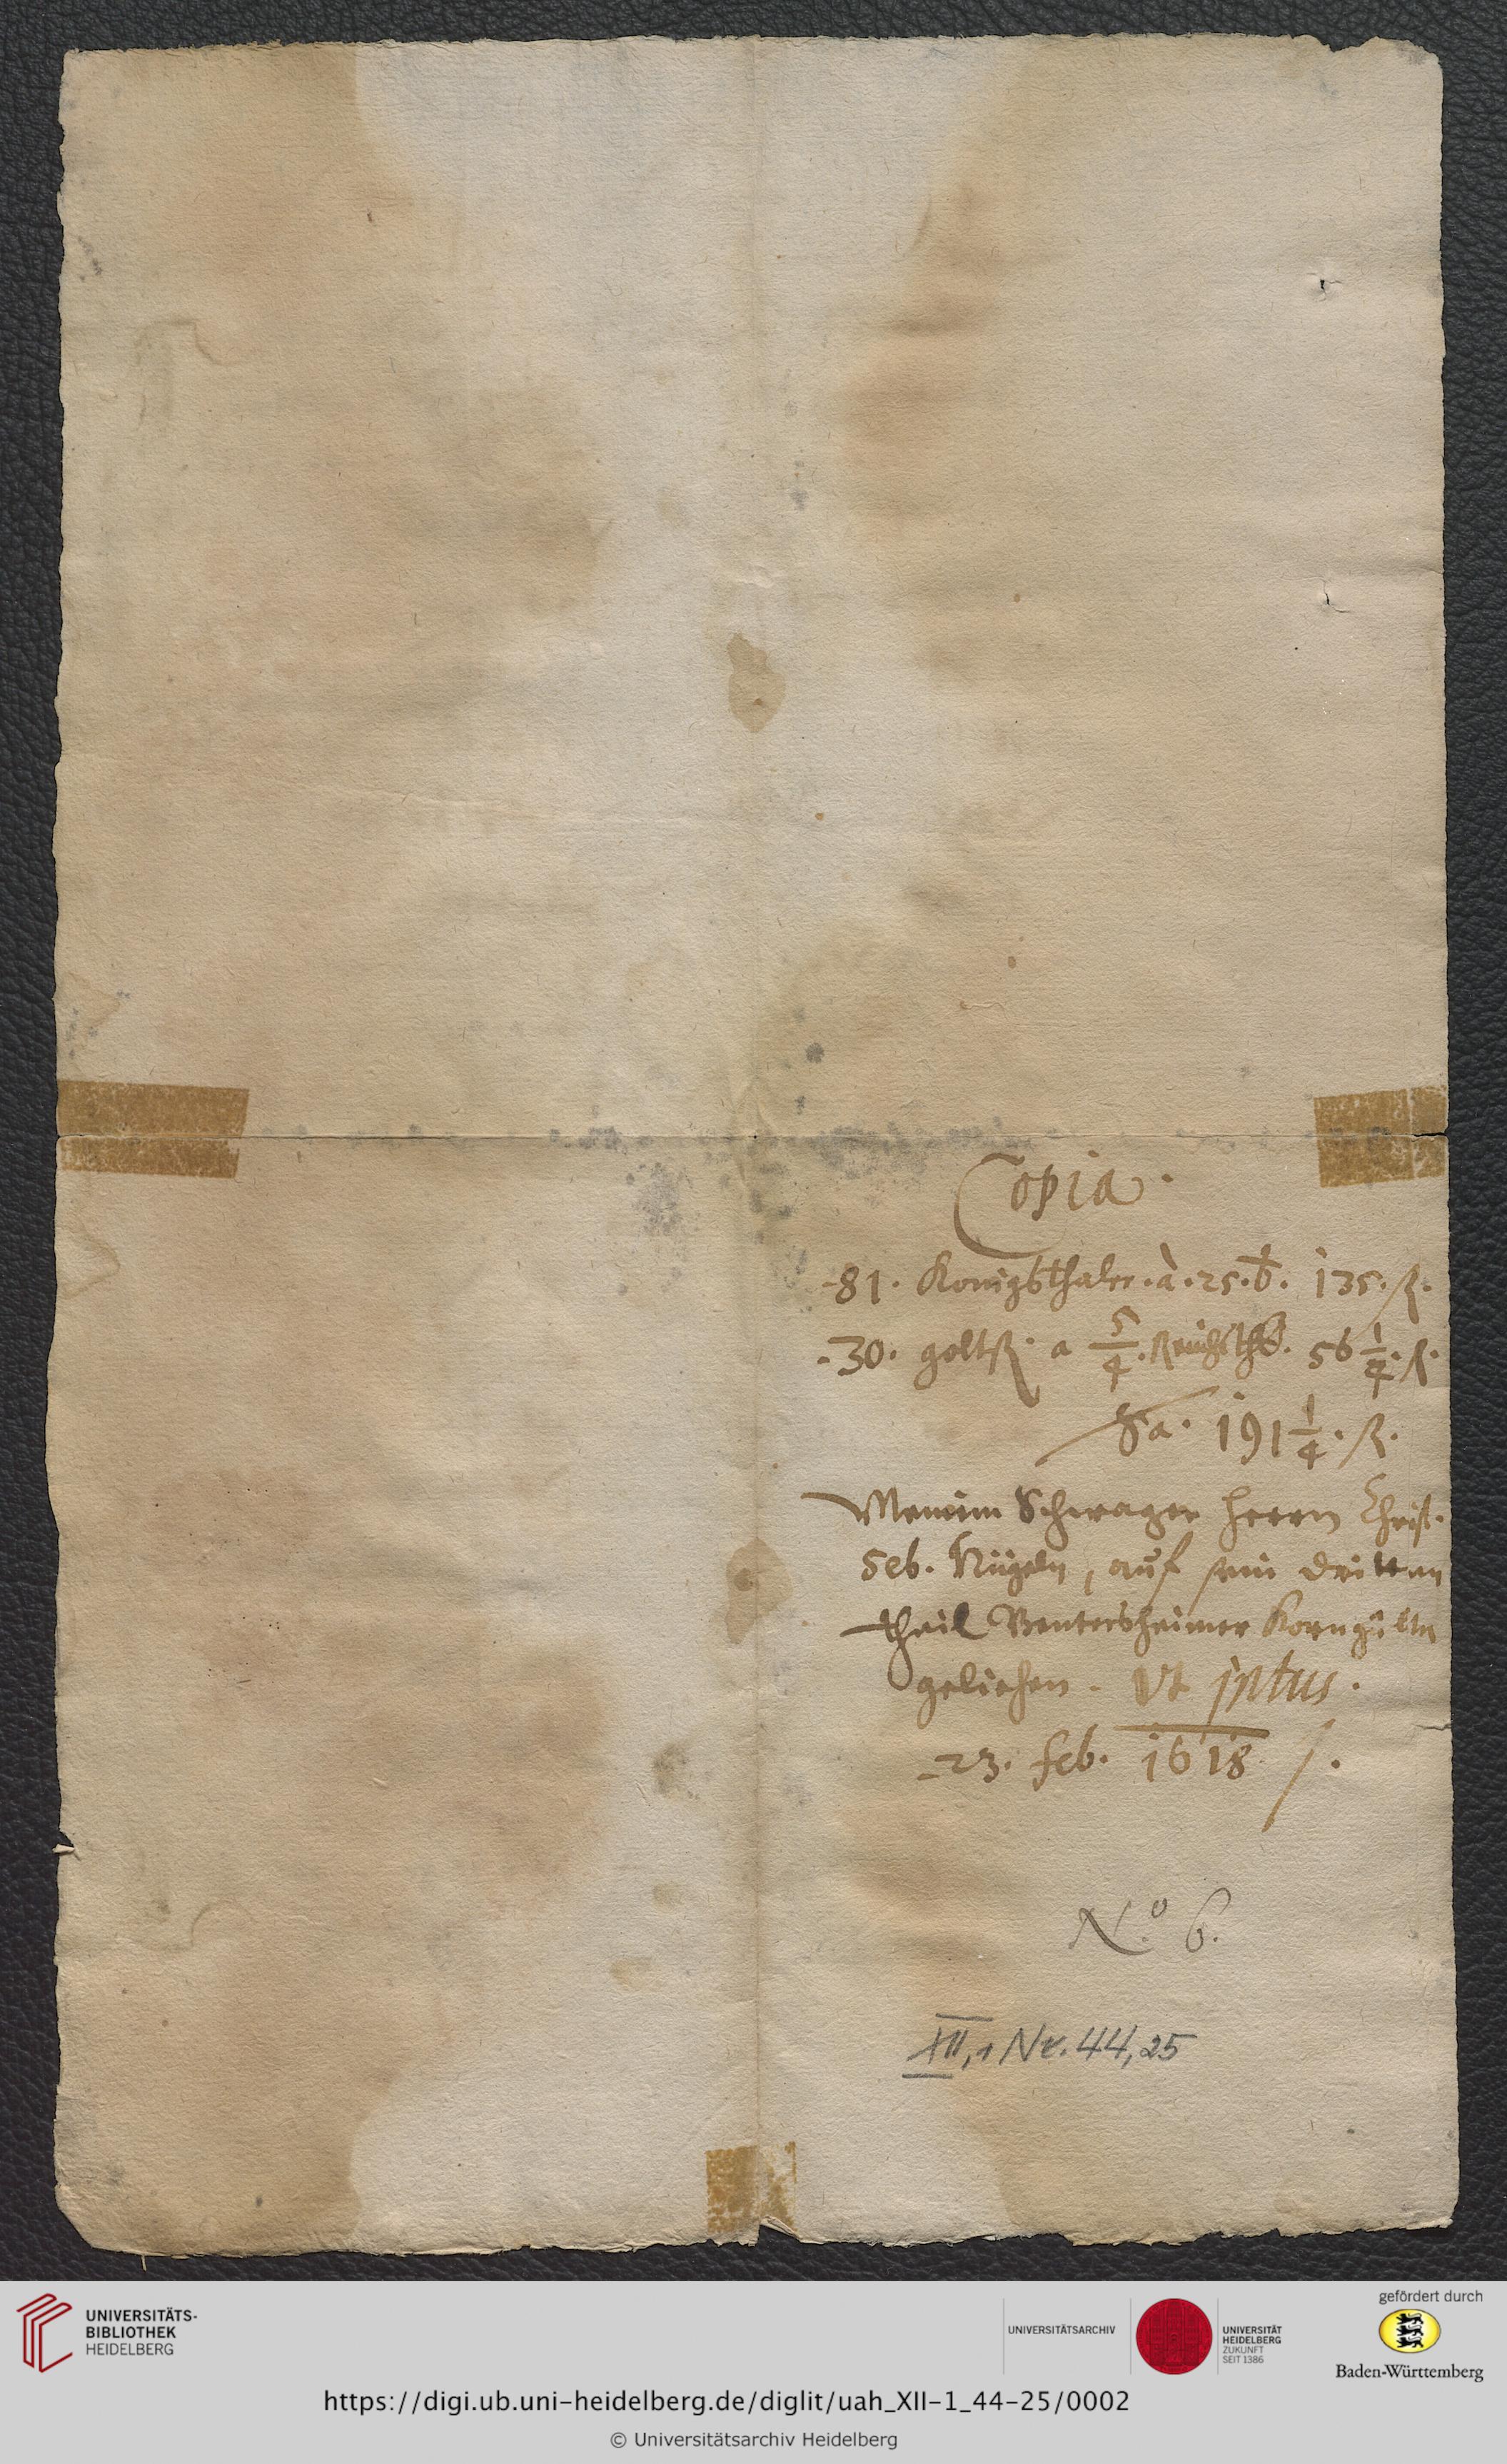 Copia.
81. Konigsthaler. à. 25. b. 135. fl.
30. goltfl. a 5/4. Reichsth. 56 1/4. fl.
Sa. 191 1/4. fl.
Meinem Schwager Herrn Christ.
Seb. Nügeln, auf sein dritten
theil Bentersheimer Korngülten
geliehen. Vt intus.
23. feb. 1618.
No. 6.
XII,1 Nr. 44,25
UNIVERSITÄTS-
BIBLIOTHEK
HEIDELBERG
UNIVERSITÄTSARCHIV
UNIVERSITÄT
HEIDELBERG
ZUKUNFT
SEIT 1386
gefördert durch
Baden-Württemberg
https://digi.ub.uni-heidelberg.de/diglit/uah_XII-1_44-25/0002
© Universitätsarchiv Heidelberg